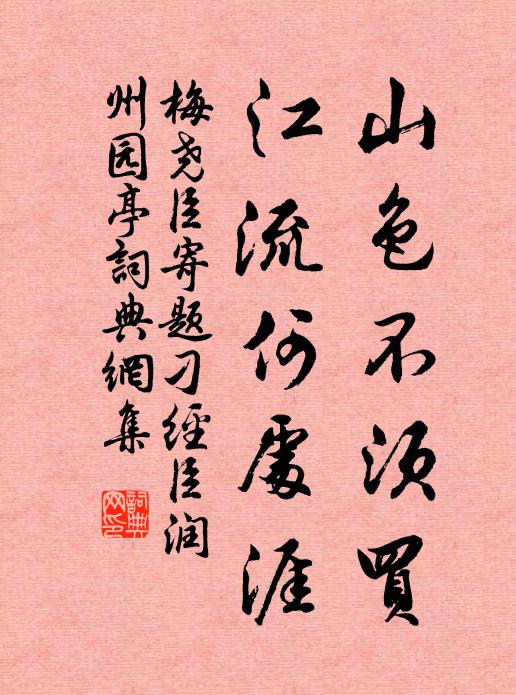 山色不須買
江流何處涯
梅尧臣寄题刁經臣润
州园亭詞典網集
詞典
网印